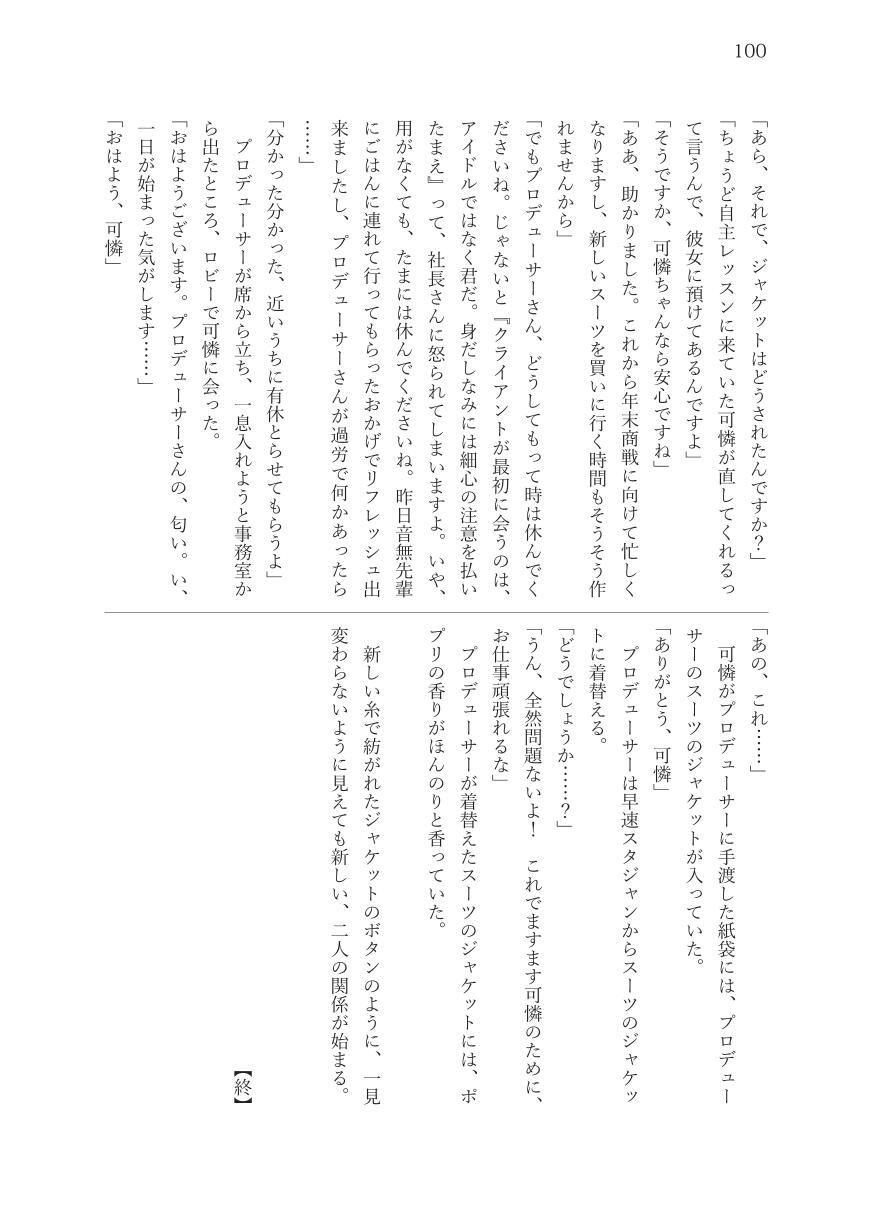 100
「あら、それで、ジャケットはどうされたんですか?」
「ちょうど自主レッスンに来ていた可憐が直してくれるっ
て言うんで、彼女に預けてあるんですよ」
「そうですか、可憐ちゃんなら安心ですね」
「ああ、助かりました。これから年末商戦に向けて忙しく
なりますし、新しいスーツを買いに行く時間もそうそう作
れませんから」
「でもプロデューサーさん、どうしてもって時は休んでく
ださいね。じゃないと『クライアントが最初に会うのは、
アイドルではなく君だ。身だしなみには細心の注意を払い
たまえ』って、社長さんに怒られてしまいますよ。いや、
用がなくても、たまには休んでくださいね。昨日音無先輩
にごはんに連れて行ってもらったおかげでリフレッシュ出
来ましたし、プロデューサーさんが過労で何かあったら
……」
「分かった分かった、近いうちに有休とらせてもらうよ」
　プロデューサーが席から立ち、一息入れようと事務室か
ら出たところ、ロビーで可憐に会った。
「おはようございます。プロデューサーさんの、匂い。い、
一日が始まった気がします……」
「おはよう、可憐」
「あの、これ……」
　可憐がプロデューサーに手渡した紙袋には、プロデュー
サーのスーツのジャケットが入っていた。
「ありがとう、可憐」
　プロデューサーは早速スタジャンからスーツのジャケッ
トに着替える。
「どうでしょうか……?」
「うん、全然問題ないよ!　これでますます可憐のために、
お仕事頑張れるな」
　プロデューサーが着替えたスーツのジャケットには、ポ
プリの香りがほんのりと香っていた。
　新しい糸で紡がれたジャケットのボタンのように、一見
変わらないように見えても新しい、二人の関係が始まる。
【終】